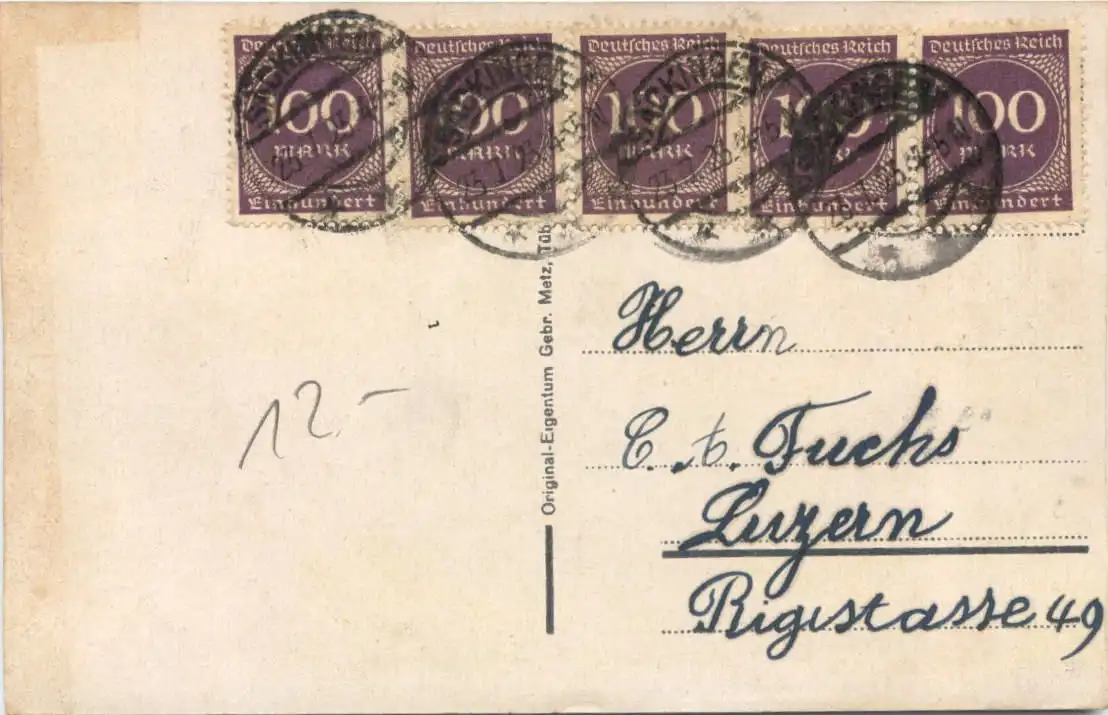 Deutsches Reich Deutsches Reich Deutsches Reich Deutsches Reich Deutsches Reich
100 100 100 100 100
MARK MARK MARK MARK MARK
Einhundert Einhundert Einhundert Einhundert Einhundert
SÄCKINGEN SÄCKINGEN SÄCKINGEN
Original-Eigentum Gebr. Metz, Tüb
12.-
Herrn
C. A. Fuchs
Luzern
Rigistasse 49